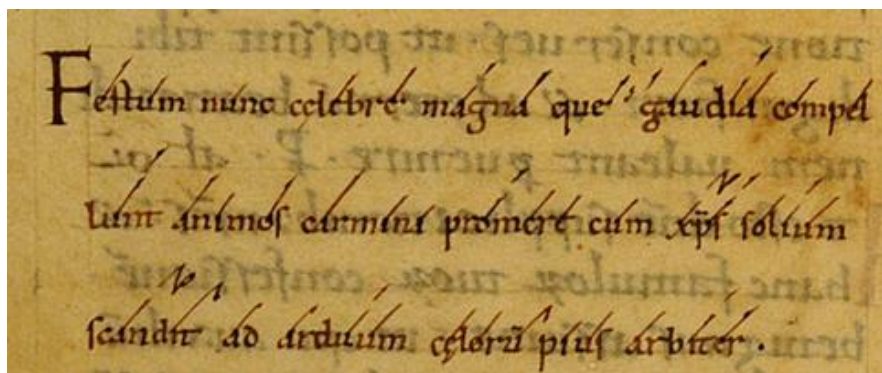 Festum nunc celebre magna que gaudia compel
lunt animos carmini promere cum xp̄s solium
scandit ad arduum cęlorū pius arbiter .